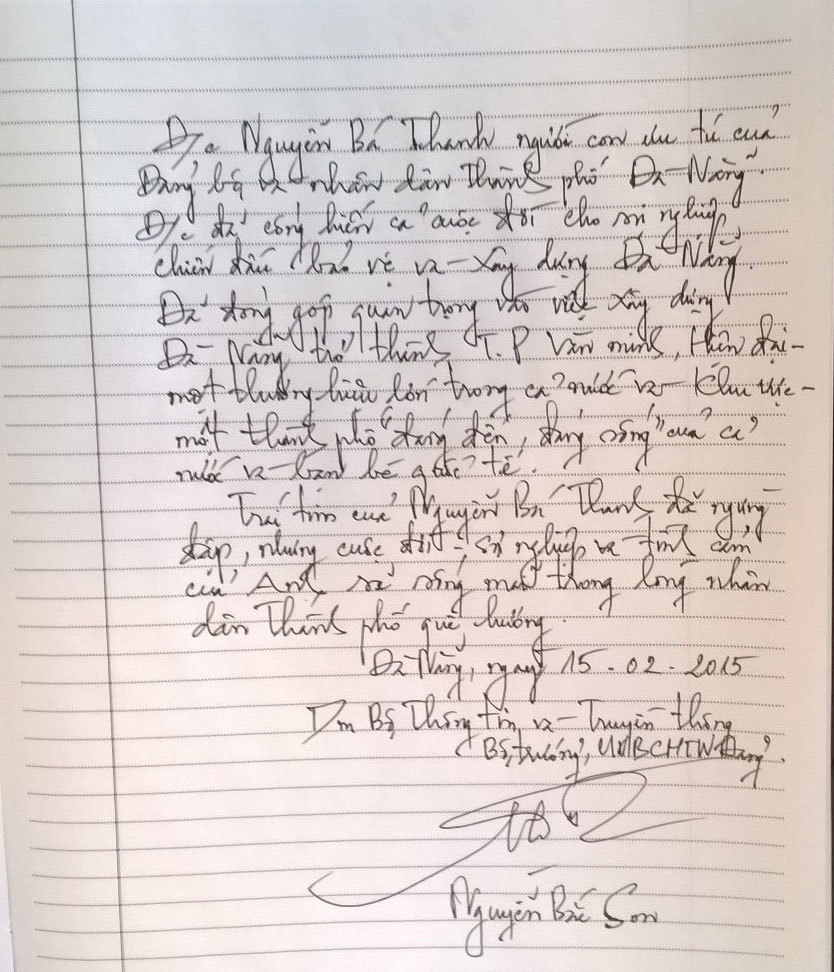 Đ/c Nguyễn Bá Thanh người con ưu tú của
Đảng bộ và nhân dân Thành phố Đà Nẵng.
Đ/c đã cống hiến cả cuộc đời cho sự nghiệp
chiến đấu bảo vệ và xây dựng Đà Nẵng.
Đã đóng góp quan trọng vào việc xây dựng
Đà Nẵng trở thành T.P Văn minh, Hiện đại -
một thương hiệu lớn trong cả nước và khu vực -
một thành phố "đáng đến, đáng sống" của cả
nước và bạn bè quốc tế.
Trái tim của Nguyễn Bá Thanh đã ngừng
đập, nhưng cuộc đời - sự nghiệp và tình cảm
của Anh sẽ sống mãi trong lòng nhân
dân Thành phố quê hương.
Đà Nẵng, ngày 15.02.2015
Bộ Thông tin và Truyền thông
Bộ trưởng, UVBCHTW Đảng.
Nguyễn Bắc Son